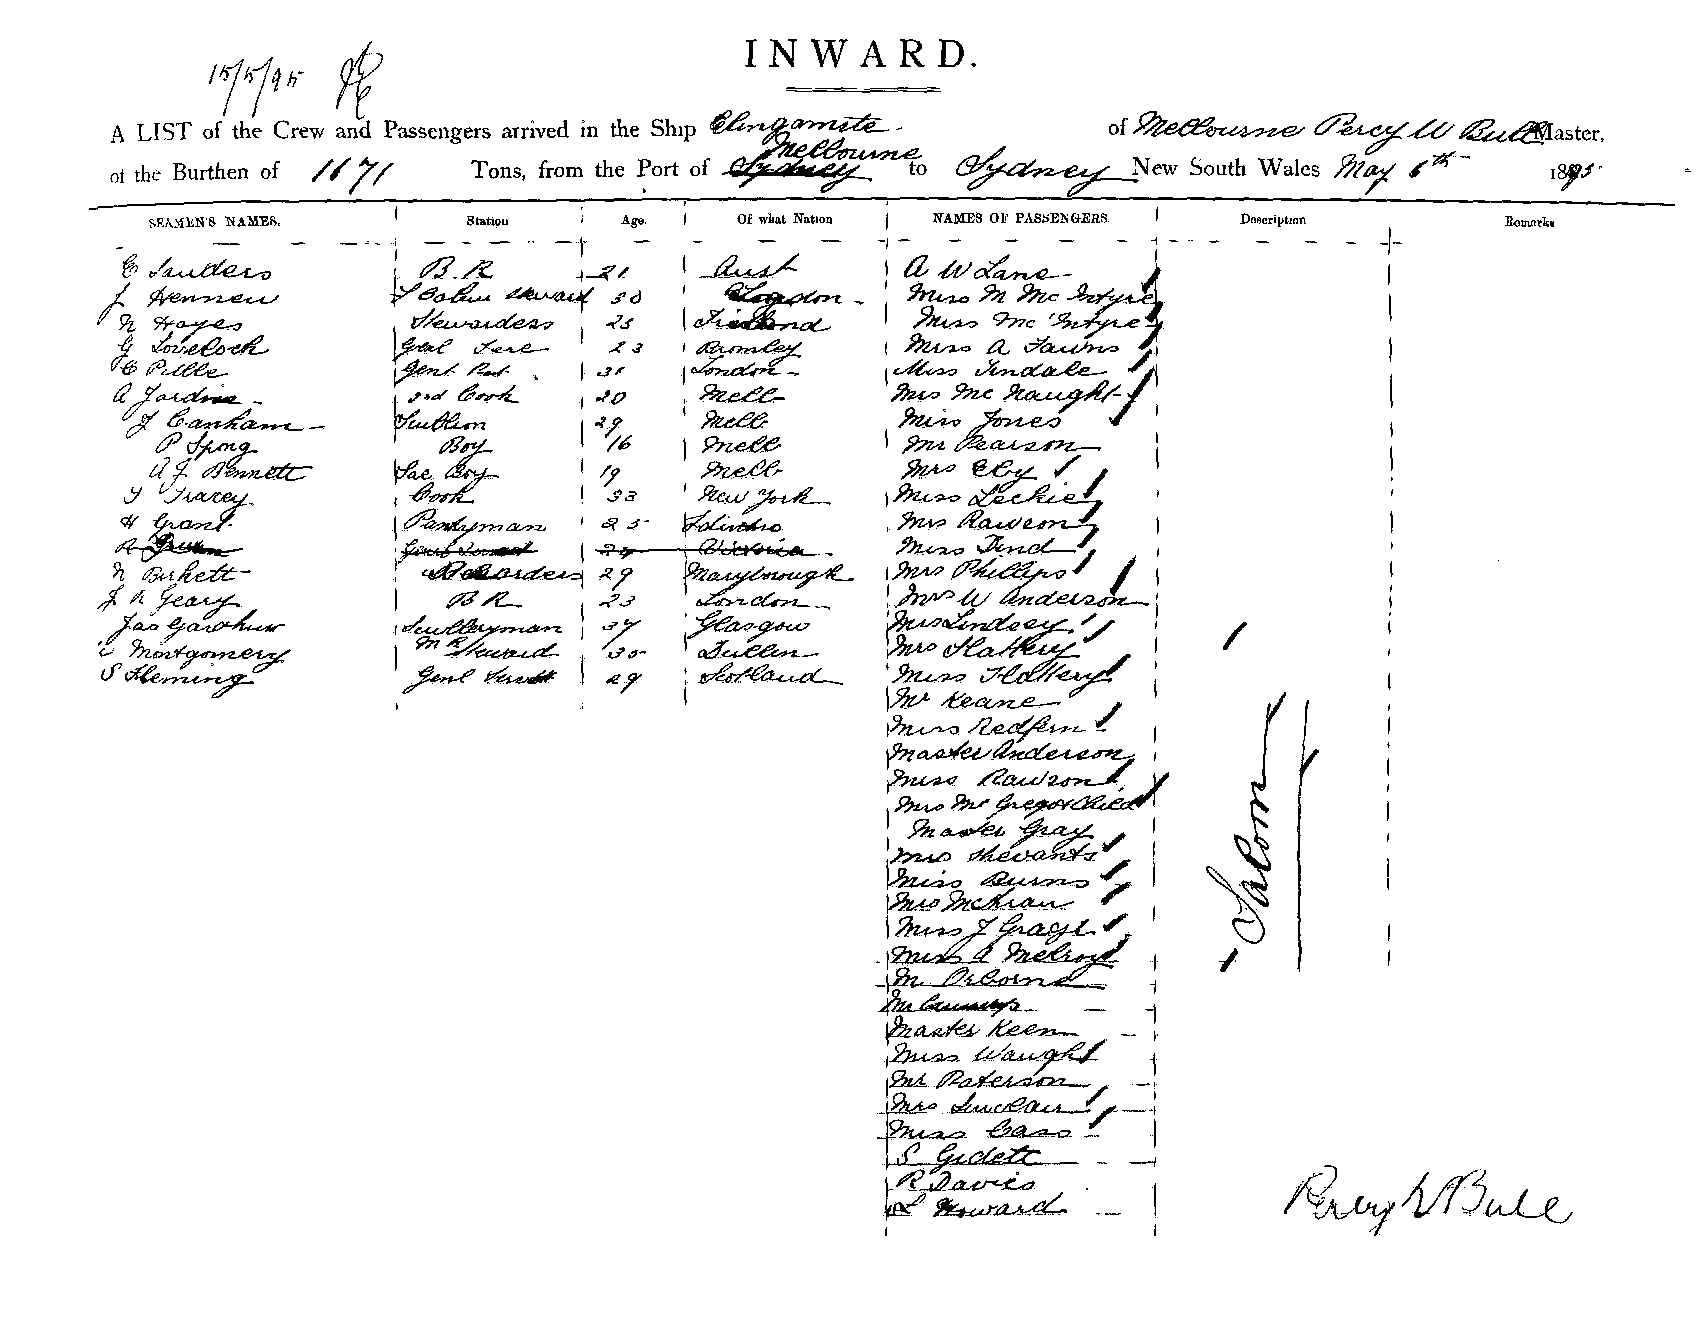 INWARD.
15/5/95
A LIST of the Crew and Passengers arrived in the Ship Elingamite of Melbourne Percy W Bull Master,
Melbourne
of the Burthen of 1671 Tons, from the Port of Sydney to Sydney New South Wales May 6th 1895
SEAMEN'S NAMES. Station Age. Of what Nation NAMES OF PASSENGERS. Description Remarks
C Saulders B.R 21 Aust A W Lane
J Hennen Steward 30 London Miss M McIntyre
N Hayes Stewardess 25 Miss McIntyre
G Lovelock Genl 23 Bromley Miss A Fawns
C Pille London Miss Tindale
A Jardine 3rd Cook 20 Melb Mrs McNaught
J Canham Scullion 29 Melb Miss Jones
P Spong Boy 16 Melb Mr Pearson
A J Bennett Boy 19 Melb Mrs Eby
T Tracey Cook 33 New York Miss Leckie
H Grant Pantryman 25 Mrs Rawson
R Victoria Miss
N Birkett 29 Maryborough Mrs Phillips
J R Geary B R 23 London Mrs W Anderson
Jas Sculleryman 37 Glasgow Mrs Lindsey
Montgomery Steward 35 Dublin Mrs Flattery
S Fleming Genl Servt 29 Scotland Miss Flattery
Mr Keane
Miss Redfern
Master Anderson
Miss Rawson
Mrs McGregor & Child
Master Gray
Mrs
Miss Burns
Mrs
Miss J
Miss A McIlroy
M Osborne
Mr
Master Keen
Miss Waugh
Mr Paterson
Mrs Sinclair
Miss Cass
S Gidett
R Davies
L Howard
Saloon
Percy W Bull